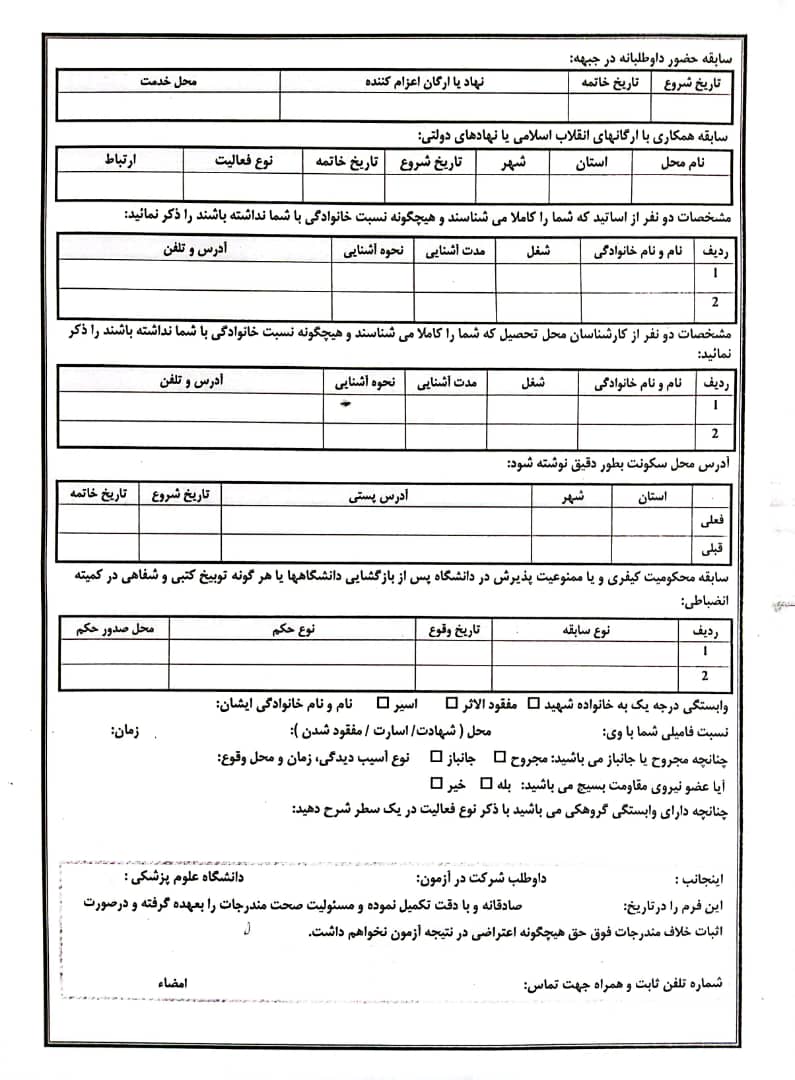 سابقه حضور داوطلبانه در جبهه:
تاریخ شروع تاریخ خاتمه نهاد یا ارگان اعزام کننده محل خدمت
سابقه همکاری با ارگانهای انقلاب اسلامی یا نهادهای دولتی:
نام محل استان شهر تاریخ شروع تاریخ خاتمه نوع فعالیت ارتباط
مشخصات دو نفر از اساتید که شما را کاملا می شناسند و هیچگونه نسبت خانوادگی با شما نداشته باشند را ذکر نمائید:
ردیف نام و نام خانوادگی شغل مدت آشنایی نحوه آشنایی آدرس و تلفن
1
2
مشخصات دو نفر از کارشناسان محل تحصیل که شما را کاملا می شناسند و هیچگونه نسبت خانوادگی با شما نداشته باشند را ذکر
نمائید:
ردیف نام و نام خانوادگی شغل مدت آشنایی نحوه آشنایی آدرس و تلفن
1
2
آدرس محل سکونت بطور دقیق نوشته شود:
استان شهر آدرس پستی تاریخ شروع تاریخ خاتمه
فعلی
قبلی
سابقه محکومیت کیفری و یا ممنوعیت پذیرش در دانشگاه پس از بازگشایی دانشگاهها یا هر گونه توبیخ کتبی و شفاهی در کمیته
انضباطی:
ردیف نوع سابقه تاریخ وقوع نوع حکم محل صدور حکم
1
2
وابستگی درجه یک به خانواده شهید ☐ مفقود الاثر ☐ اسیر ☐ نام و نام خانوادگی ایشان:
نسبت فامیلی شما با وی: محل ( شهادت/ اسارت / مفقود شدن ): زمان:
چنانچه مجروح یا جانباز می باشید: مجروح ☐ جانباز ☐ نوع آسیب دیدگی، زمان و محل وقوع:
آیا عضو نیروی مقاومت بسیج می باشید: بله ☐ خیر ☐
چنانچه دارای وابستگی گروهکی می باشید با ذکر نوع فعالیت در یک سطر شرح دهید:
اینجانب : داوطلب شرکت در آزمون: دانشگاه علوم پزشکی :
این فرم را درتاریخ: صادقانه و با دقت تکمیل نموده و مسئولیت صحت مندرجات را بعهده گرفته و درصورت
اثبات خلاف مندرجات فوق حق هیچگونه اعتراضی در نتیجه آزمون نخواهم داشت.
شماره تلفن ثابت و همراه جهت تماس: امضاء